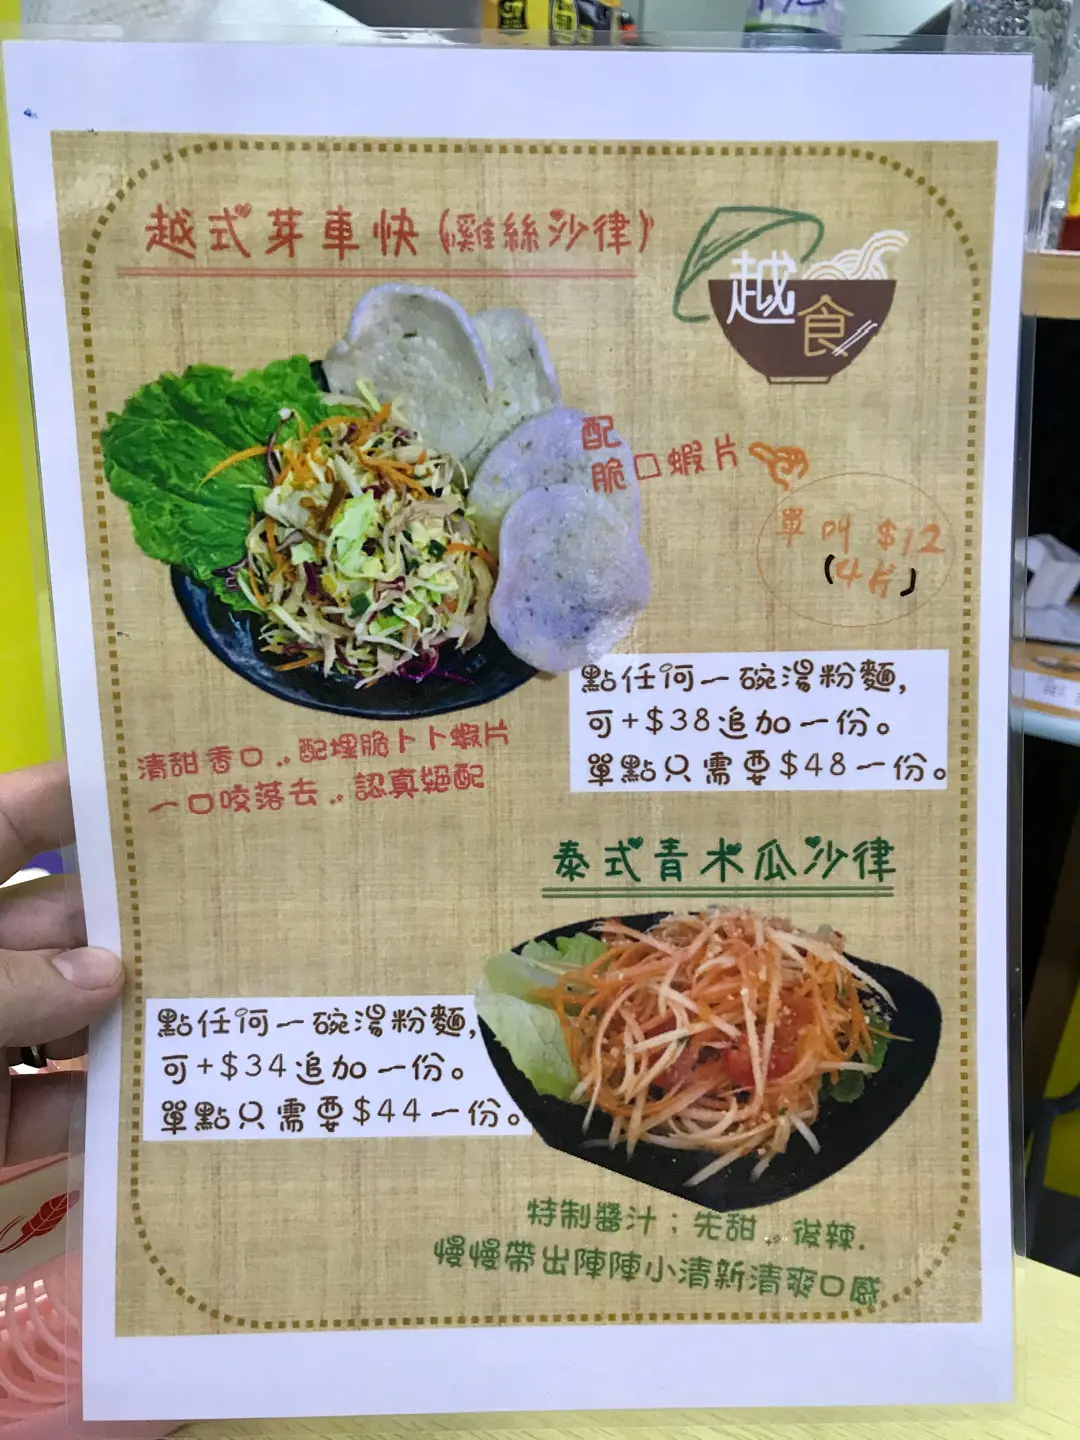 越式芽車快(雞絲沙律)
越
食
配
脆口蝦片
單叫 $12
(4片)
點任何一碗湯粉麵,
可+$38追加一份。
單點只需要$48一份。
清甜香口..配埋脆卜卜蝦片
一口咬落去..認真絕配
泰式青木瓜沙律
點任何一碗湯粉麵,
可+$34追加一份。
單點只需要$44一份。
特制醬汁；先甜..後辣.
慢慢帶出陣陣小清新清爽口感